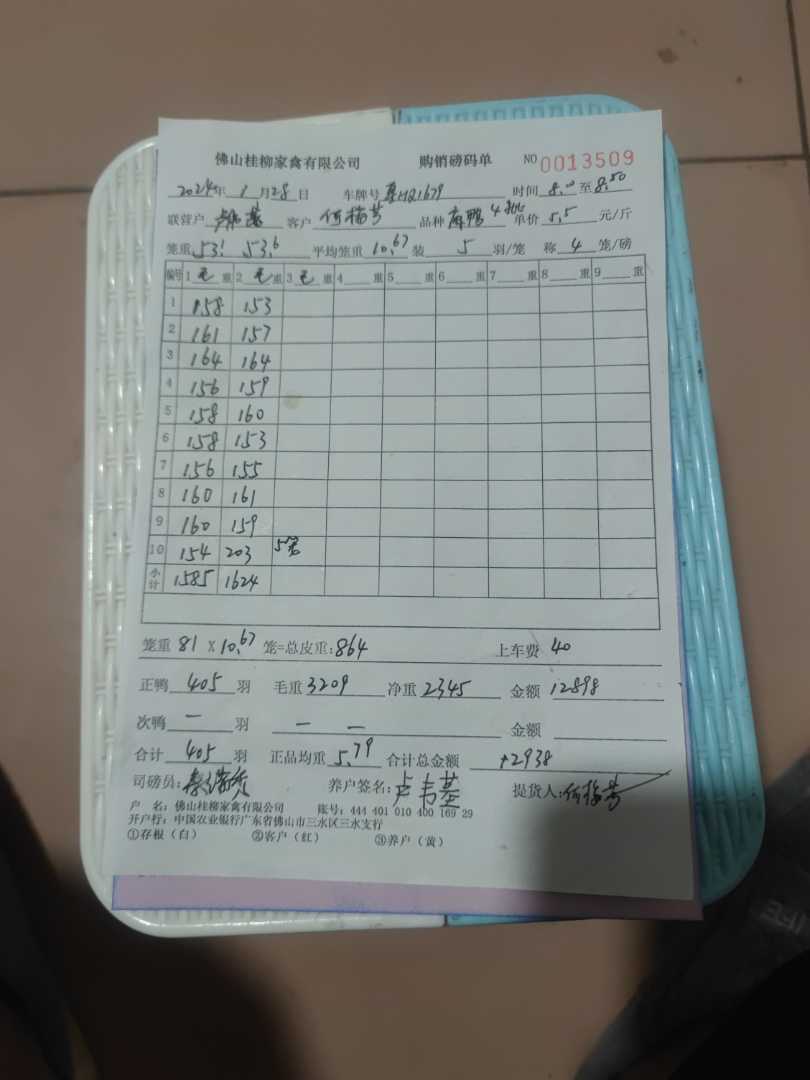 佛山桂柳家禽有限公司 购销磅码单 NO 0013509
2024年 1月28日 车牌号 1679 时间 8.0 至 8.50
联营户 客户 何梅芳 品种 麻鸭 4批 单价 5.5 元/斤
笼重 53.1 53.6 平均笼重 10.67 装 5 羽/笼 称 4 笼/磅
编号 1 毛 重 2 毛 重 3 毛 重 4 重 5 重 6 重 7 重 8 重 9 重
1 158 153
2 161 157
3 164 164
4 156 159
5 158 160
6 158 153
7 156 155
8 160 161
9 160 159
10 154 203 5笼
小计 1585 1624
笼重 81 x 10.67 笼=总皮重:864 上车费 40
正鸭 405 羽 毛重 3209 净重 2345 金额 12898
次鸭 — 羽 — — 金额
合计 405 羽 正品均重 5.79 合计总金额 12938
司磅员: 养户签名:卢韦基 提货人:何梅芳
户 名:佛山桂柳家禽有限公司 账号:444 401 010 400 169 29
开户行:中国农业银行广东省佛山市三水区三水支行
①存根(白) ②客户(红) ③养户(黄)